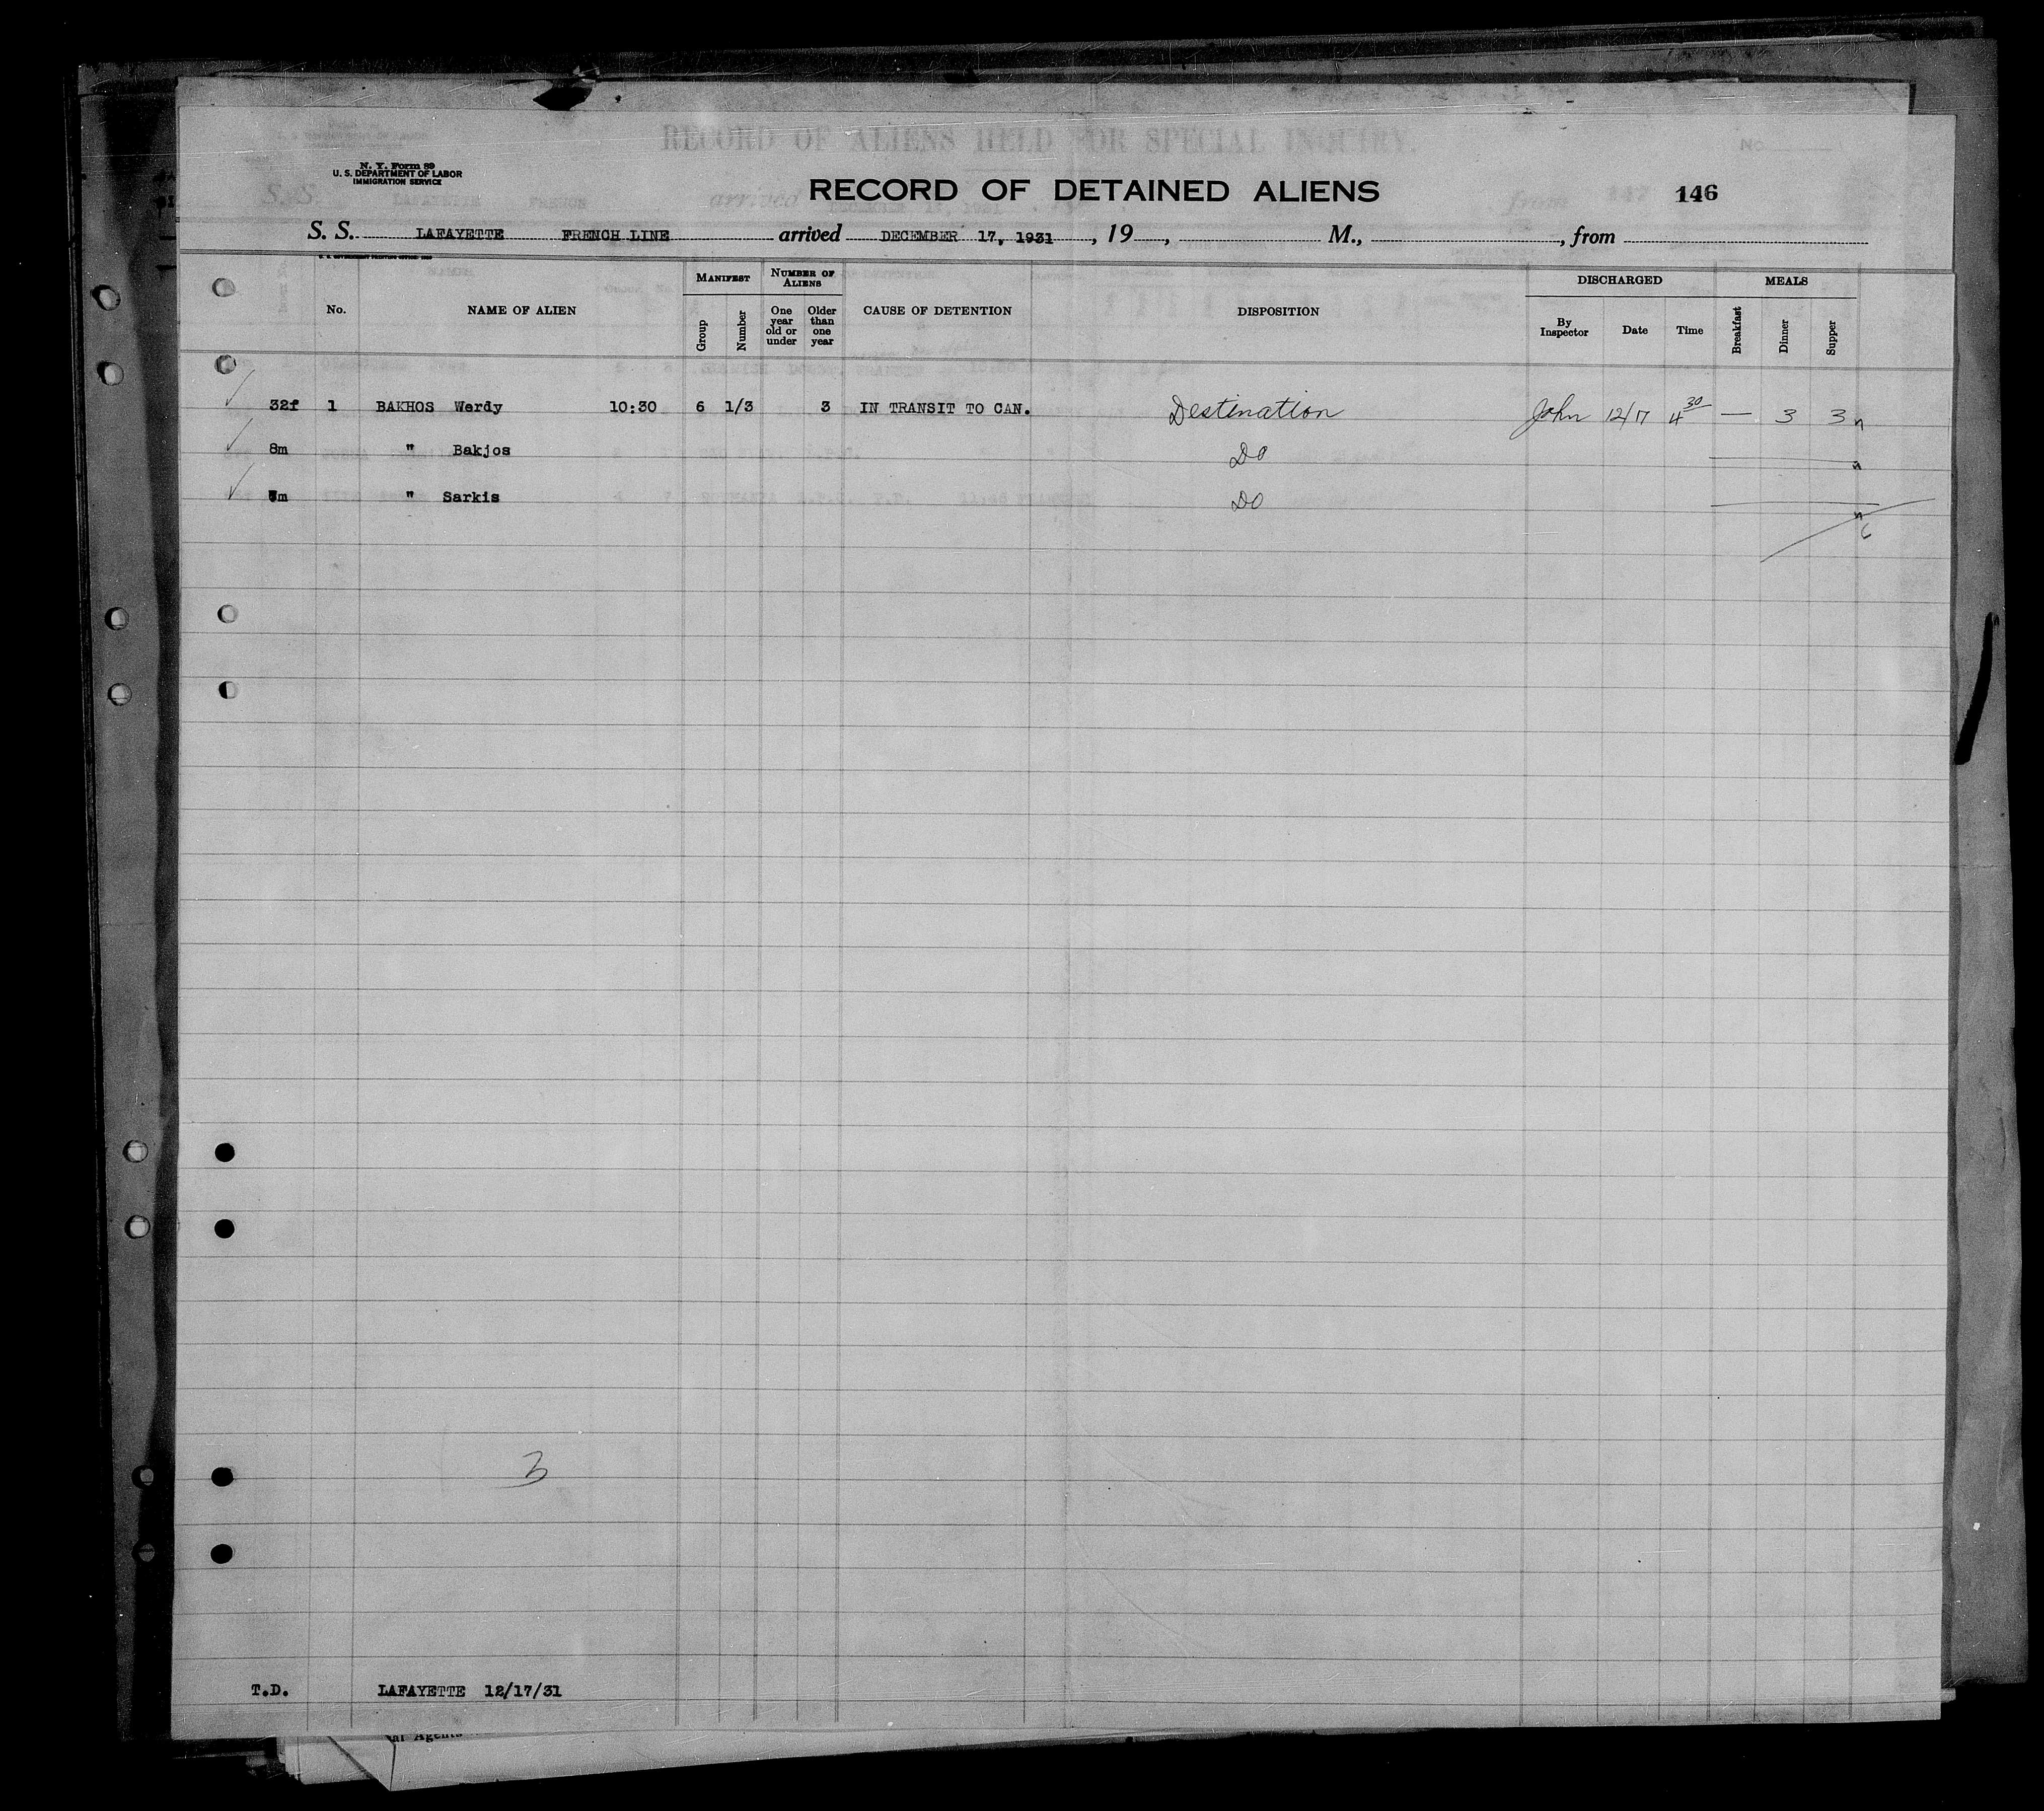 N. Y. Form 89
U. S. DEPARTMENT OF LABOR
IMMIGRATION SERVICE
RECORD OF DETAINED ALIENS 146
S. S. LAFAYETTE FRENCH LINE arrived DECEMBER 17, 1931, 19 , M., , from
No. NAME OF ALIEN MANIFEST Group Number NUMBER OF ALIENS One year old or under Older than one year CAUSE OF DETENTION DISPOSITION DISCHARGED By Inspector Date Time MEALS Breakfast Dinner Supper
32f 1 BAKHOS Werdy 10:30 6 1/3 3 IN TRANSIT TO CAN. Destination John 12/17 4 30 — 3 3
8m " Bakjos Do
7m " Sarkis Do
6
3
T.D. LAFAYETTE 12/17/31
RECORD OF ALIENS HELD FOR SPECIAL INQUIRY.